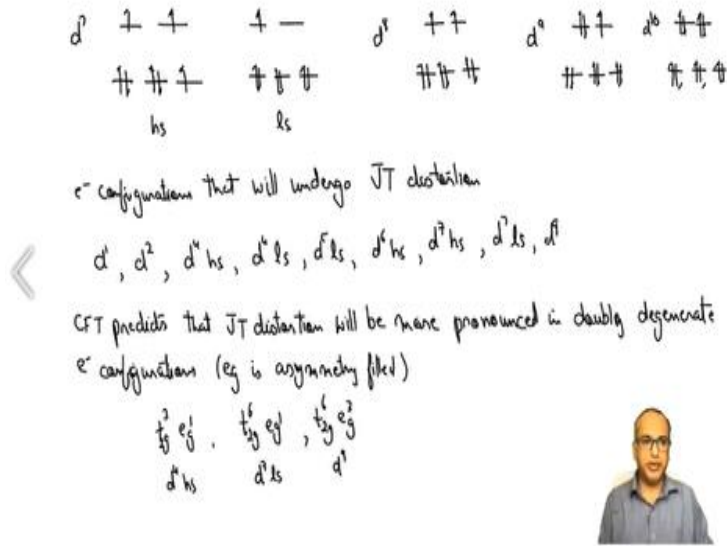 d⁷ d⁸ d⁹ d¹⁰
hs ls
e⁻ configurations that will undergo JT distortion
d¹, d², d⁴ hs, d⁴ ls, d⁵ ls, d⁶ hs, d⁷ hs, d⁷ ls, d⁹
CFT predicts that JT distortion will be more pronounced in doubly degenerate
e⁻ configurations (eg is asymmetry filled)
t₂g³ eg¹, t₂g⁶ eg¹, t₂g⁶ eg³
d⁴ hs d⁷ ls d⁹